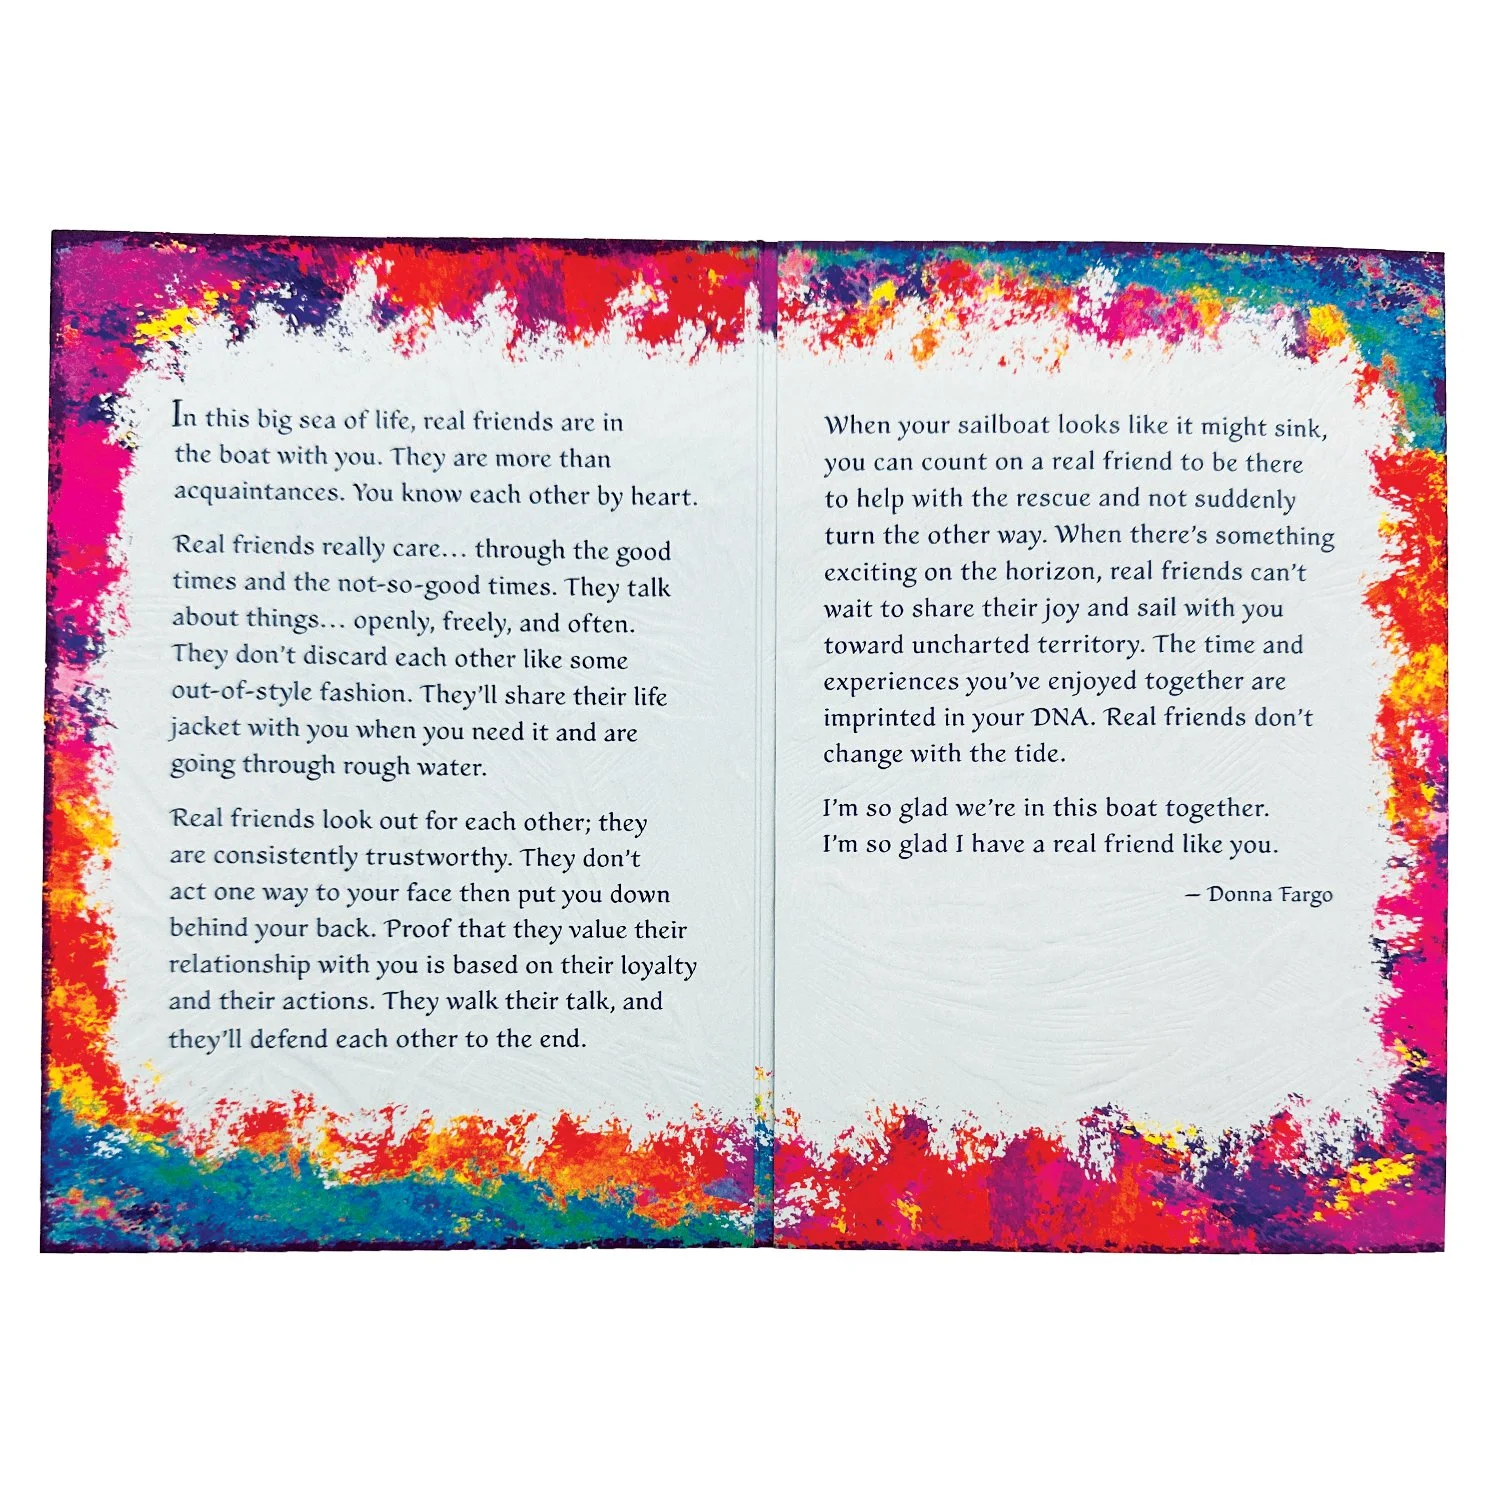 In this big sea of life, real friends are in
the boat with you. They are more than
acquaintances. You know each other by heart.
Real friends really care... through the good
times and the not-so-good times. They talk
about things... openly, freely, and often.
They don't discard each other like some
out-of-style fashion. They'll share their life
jacket with you when you need it and are
going through rough water.
Real friends look out for each other; they
are consistently trustworthy. They don't
act one way to your face then put you down
behind your back. Proof that they value their
relationship with you is based on their loyalty
and their actions. They walk their talk, and
they'll defend each other to the end.
When your sailboat looks like it might sink,
you can count on a real friend to be there
to help with the rescue and not suddenly
turn the other way. When there's something
exciting on the horizon, real friends can't
wait to share their joy and sail with you
toward uncharted territory. The time and
experiences you've enjoyed together are
imprinted in your DNA. Real friends don't
change with the tide.
I'm so glad we're in this boat together.
I'm so glad I have a real friend like you.
– Donna Fargo